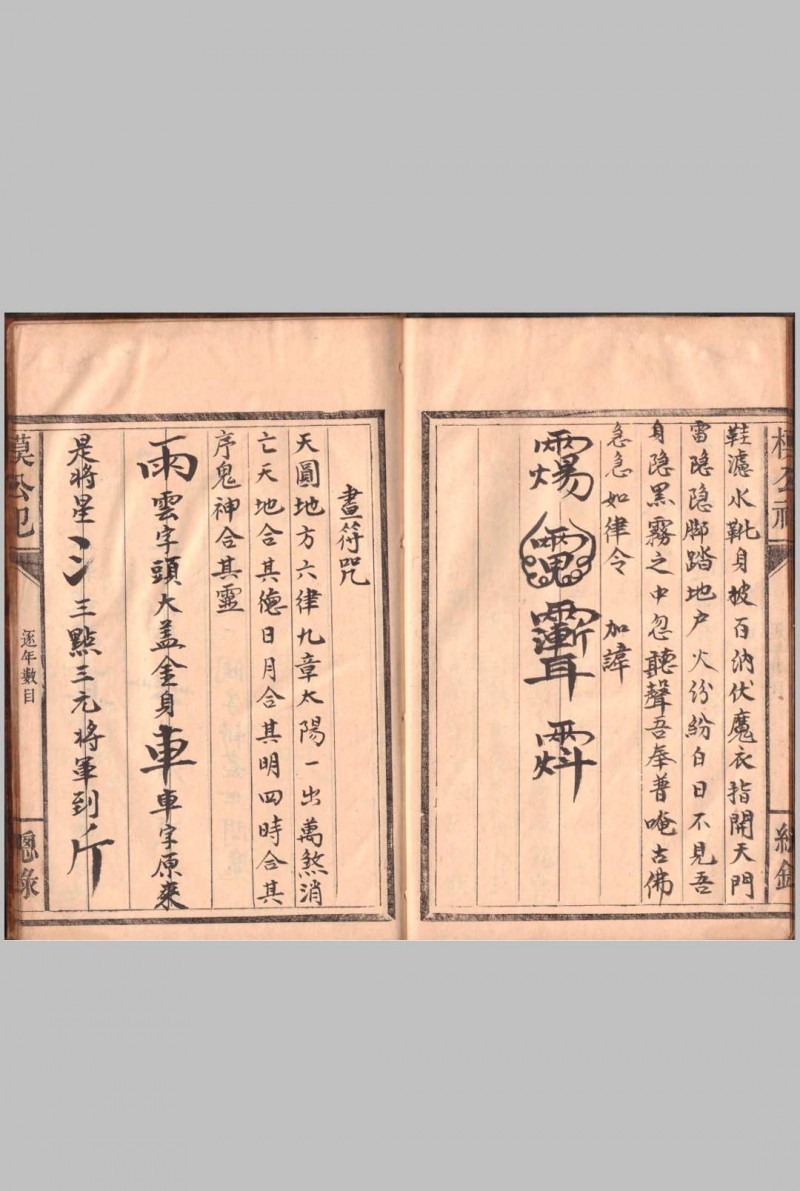 鞋濾水靴身披百衲伏魔衣指開天門
雷隐隐脚踏地户火份紛白日不見吾
身隐黑霧之中忽聽聲吾奉普唵古佛
急急如律令 加諱
畫符咒
天圓地方六律九章太陽一出萬煞消
亡天地合其德日月合其明四時合其
序鬼神合其靈
雨雲字頭大盖金身車車字原來
是將星氵三點三元將軍到斤
逐年數目
總錄